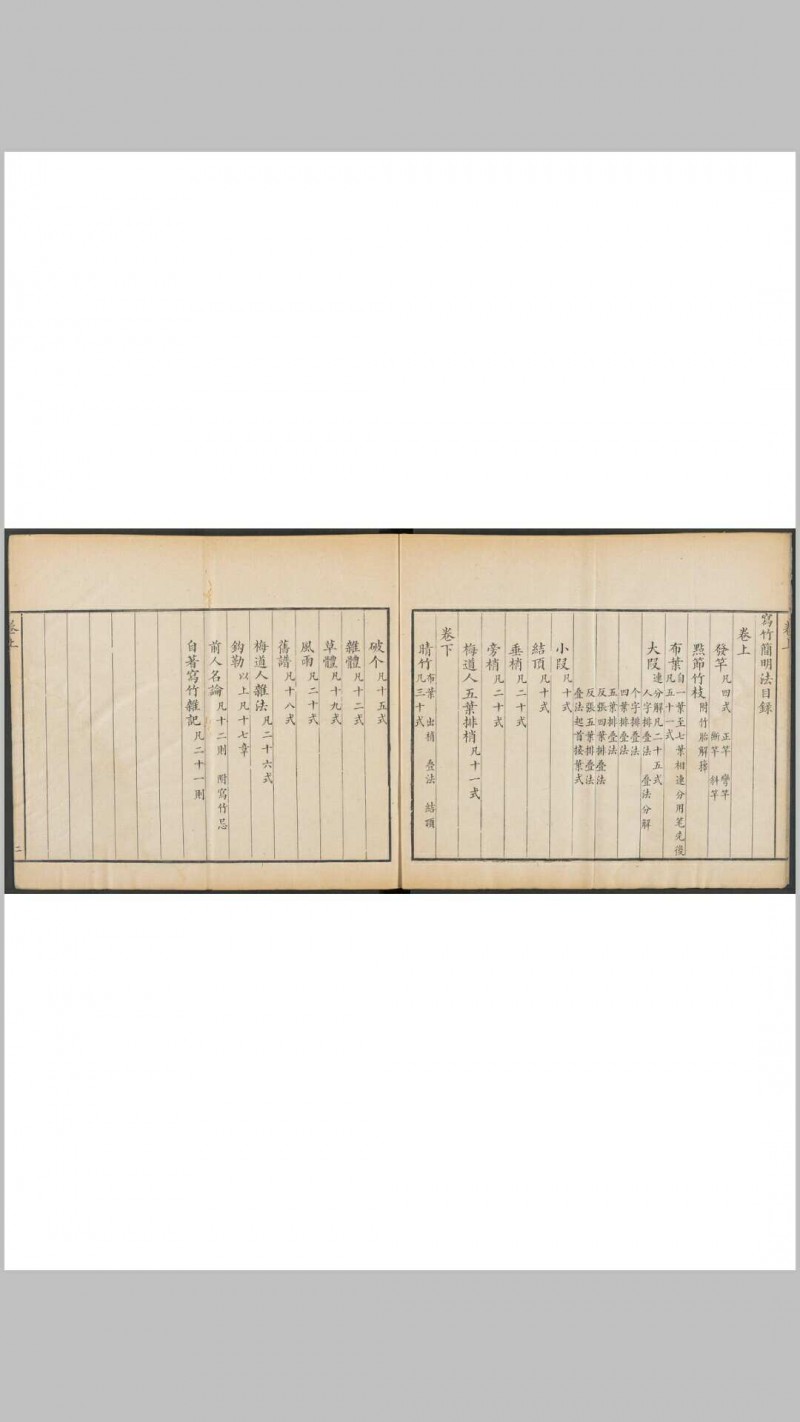 寫竹簡明法目錄
卷上
發竿凡四式 正竿 彎竿 斷竿 斜竿
點節竹枝附竹胎解籜
布葉自一葉至七葉相連分用笔先後凡五十一式
大段連分解凡二十五式
人字排疊法 疊法分解
个字排疊法
四葉排疊法
五葉排疊法
反張四葉排疊法
反張五葉排疊法
疊法起首接葉式
小段凡十式
結頂凡十式
垂梢凡二十式
旁梢凡二十式
梅道人五葉排梢凡十一式
卷下
晴竹布葉 出梢 疊法 結頂凡三十式
破个凡十五式
雜體凡十二式
草體凡十九式
風雨凡二十式
舊譜凡十八式
梅道人雜法凡二十六式
鈎勒以上凡十七章
前人名論凡十二則 附寫竹忌
自著寫竹雜記凡二十一則
卷上
二